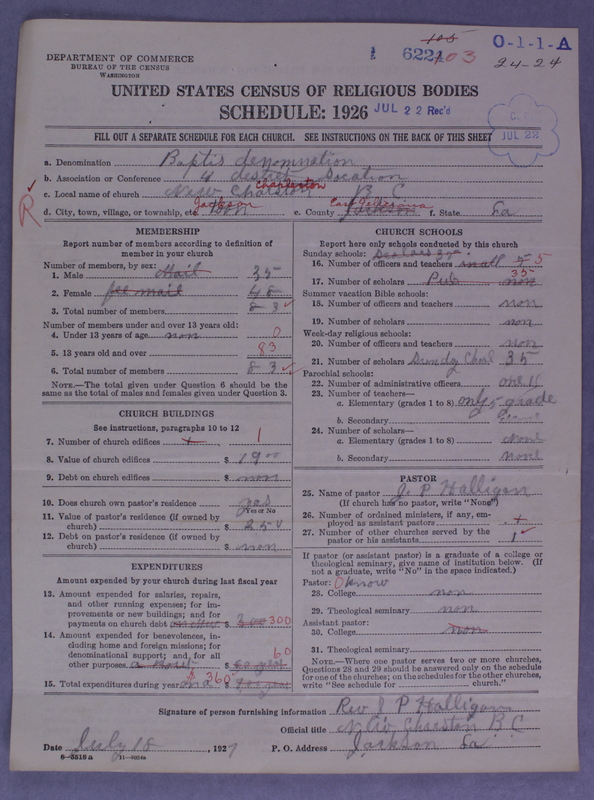 105
1 6221 103
O-1-1-A
24-24
DEPARTMENT OF COMMERCE
BUREAU OF THE CENSUS
WASHINGTON
UNITED STATES CENSUS OF RELIGIOUS BODIES
SCHEDULE: 1926 JUL 22 Rec'd
JUL 22
FILL OUT A SEPARATE SCHEDULE FOR EACH CHURCH. SEE INSTRUCTIONS ON THE BACK OF THIS SHEET
a. Denomination Baptis denomnation
b. Association or Conference 4 destrict
c. Local name of church Charleston B C
R d. City, town, village, or township, etc. Jackson e. County East Feliciana Jackson f. State La
MEMBERSHIP
Report number of members according to definition of
member in your church
Number of members, by sex:
1. Male Mail 35
2. Female fee mail 48
3. Total number of members 83
Number of members under and over 13 years old:
4. Under 13 years of age non 0
5. 13 years old and over 83
6. Total number of members 83
NOTE.—The total given under Question 6 should be the
same as the total of males and females given under Question 3.
CHURCH BUILDINGS
See instructions, paragraphs 10 to 12
7. Number of church edifices 1
8. Value of church edifices $ 1900
9. Debt on church edifices $ non
10. Does church own pastor's residence yas
Yes or No
11. Value of pastor's residence (if owned by
church) $ 250
12. Debt on pastor's residence (if owned by
church) $ non
EXPENDITURES
Amount expended by your church during last fiscal year
13. Amount expended for salaries, repairs,
and other running expenses; for im-
provements or new buildings; and for
payments on church debt $ 300 300
14. Amount expended for benevolences, in-
cluding home and foreign missions; for
denominational support; and, for all 60
other purposes $
15. Total expenditures during year 360 $
CHURCH SCHOOLS
Report here only schools conducted by this church
Sunday schools:
16. Number of officers and teachers small 5 5
17. Number of scholars Pub 35 non
Summer vacation Bible schools:
18. Number of officers and teachers non
19. Number of scholars non
Week-day religious schools:
20. Number of officers and teachers non
21. Number of scholars 35
Parochial schools:
22. Number of administrative officers
23. Number of teachers—
a. Elementary (grades 1 to 8) only 5 grade
b. Secondary
24. Number of scholars—
a. Elementary (grades 1 to 8) none
b. Secondary none
PASTOR
25. Name of pastor J. P Halligan
(If church has no pastor, write "None")
26. Number of ordained ministers, if any, em-
ployed as assistant pastors
27. Number of other churches served by the
pastor or his assistants 1
If pastor (or assistant pastor) is a graduate of a college or
theological seminary, give name of institution below. (If
not a graduate, write "No" in the space indicated.)
Pastor: 0 know
28. College non
29. Theological seminary non
Assistant pastor:
30. College non
31. Theological seminary
NOTE.—Where one pastor serves two or more churches,
Questions 28 and 29 should be answered only on the schedule
for one of the churches; on the schedules for the other churches,
write "See schedule for church."
Signature of person furnishing information Rev J P Halligan
Official title Charston B C
Date July 18, 1927 P. O. Address Jackson La
6—5518a 11—9034a